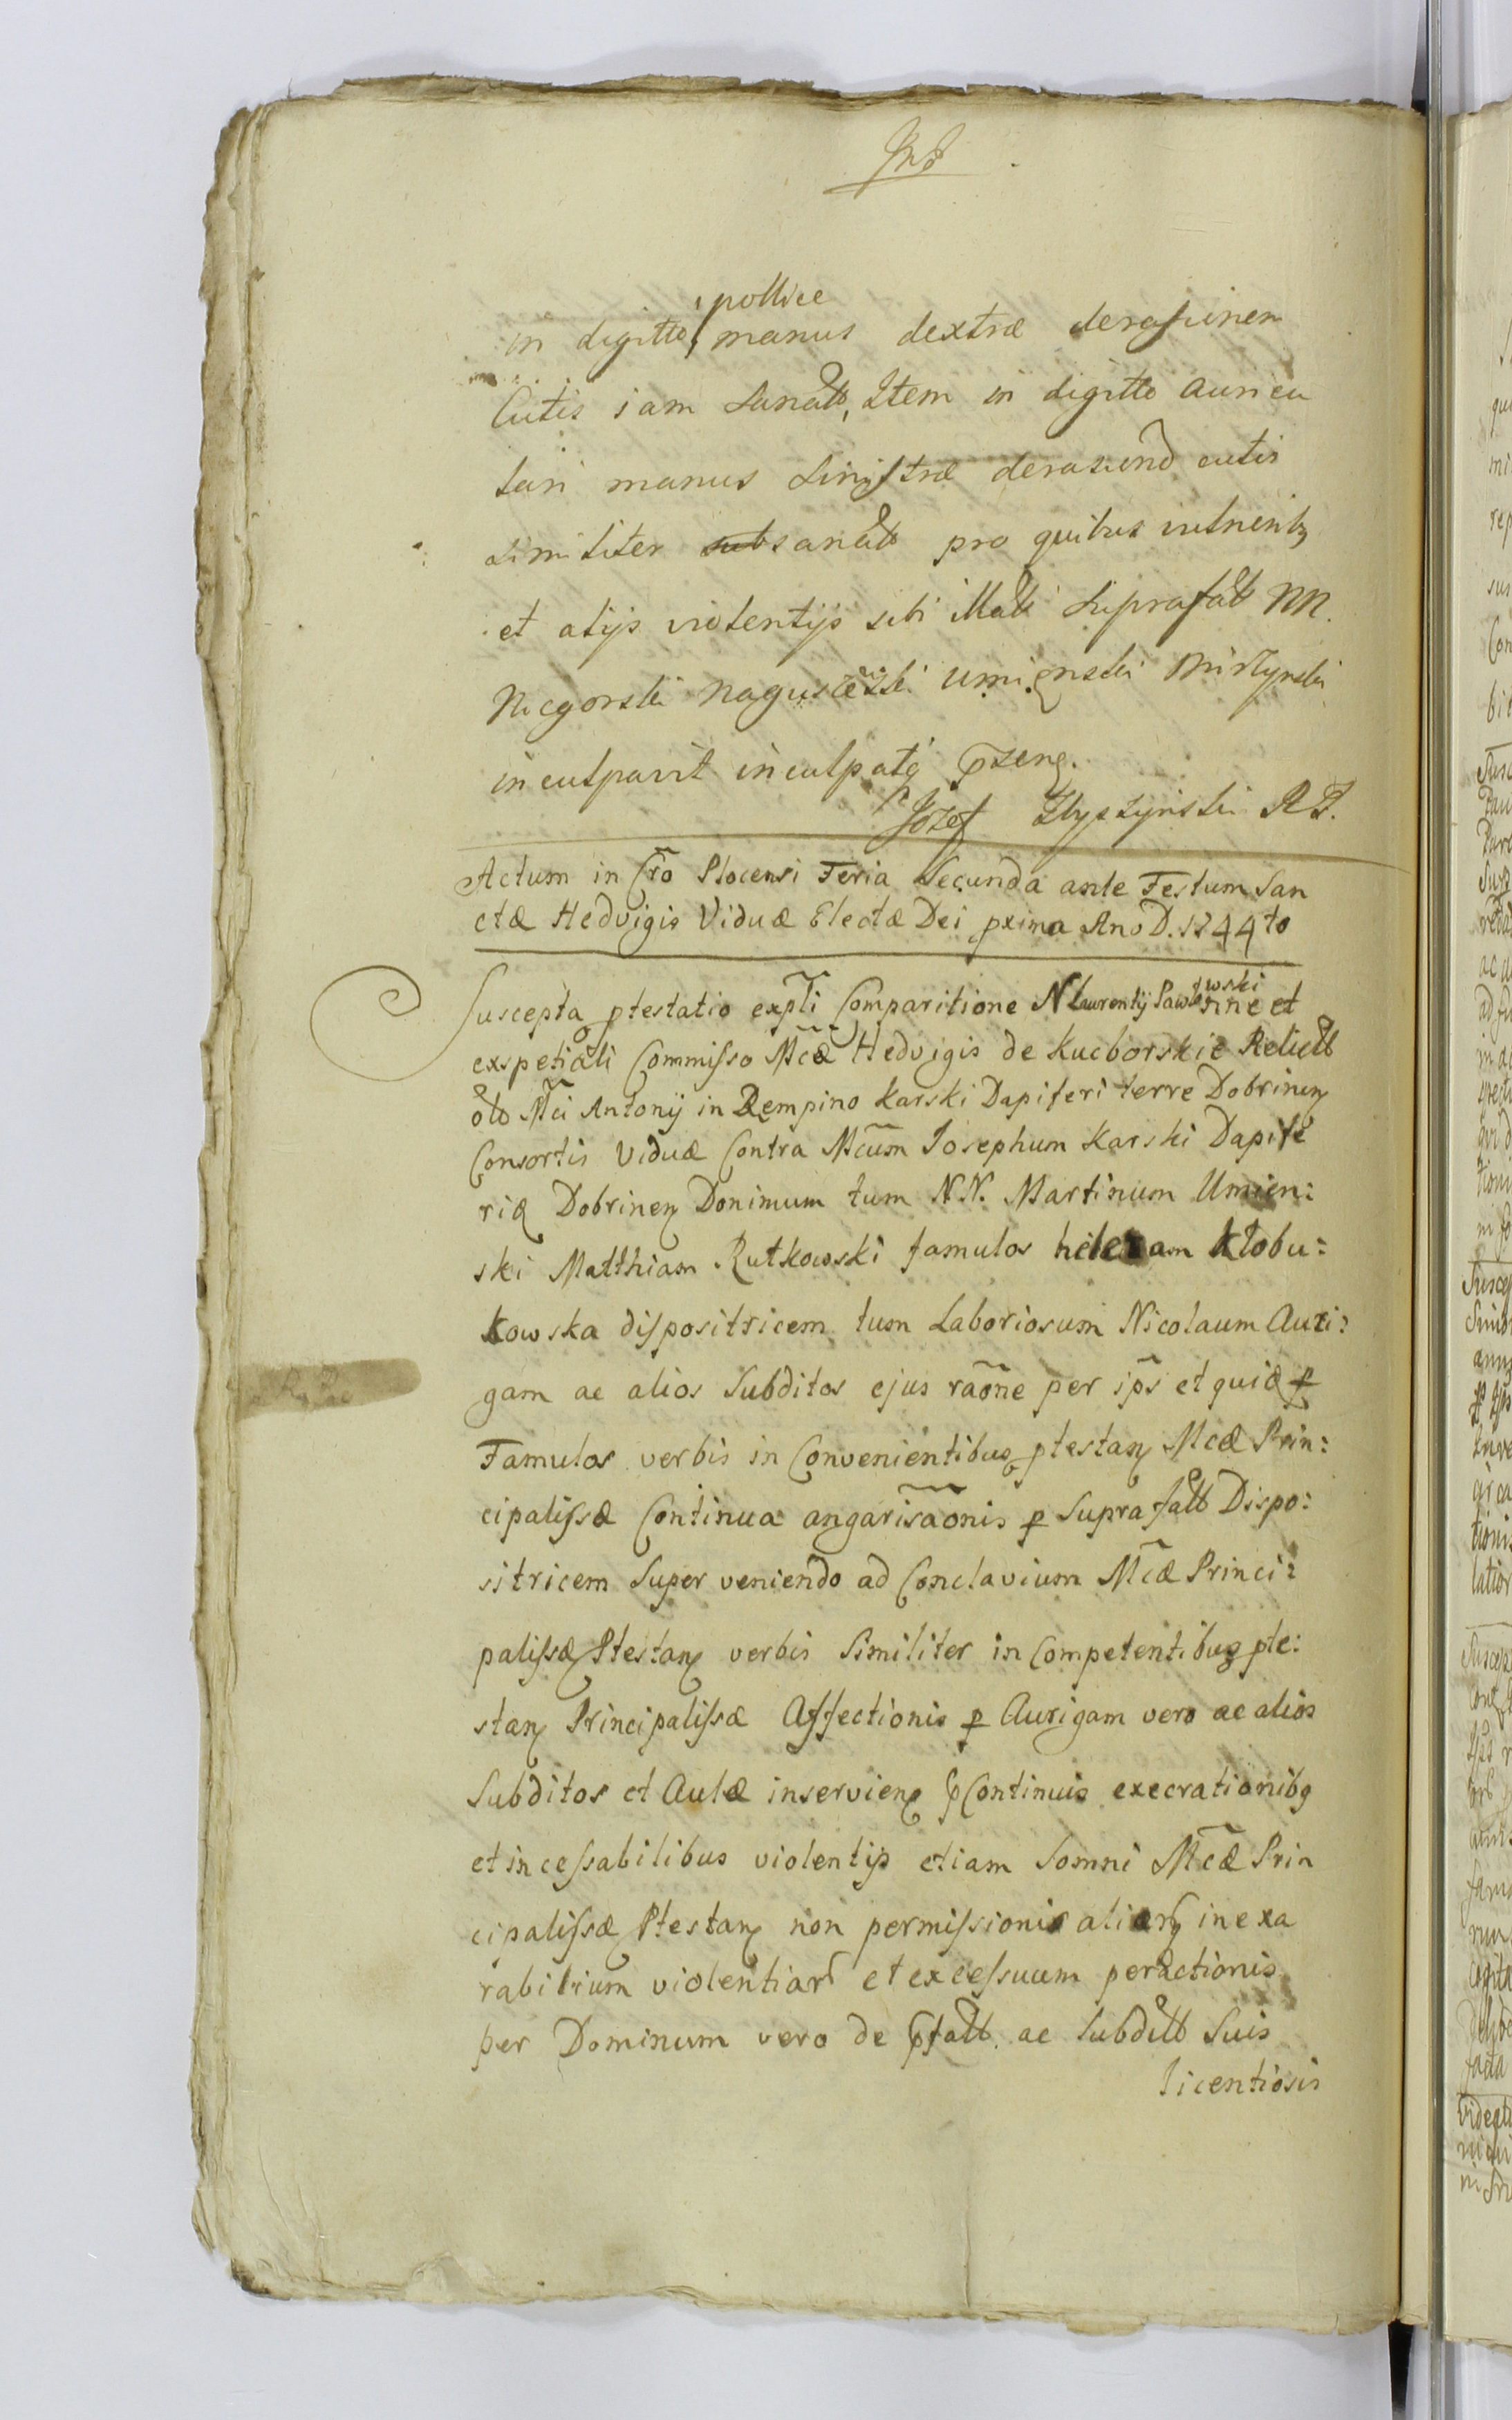 pollice
in digitto manus dextræ derasionem
Cutis iam Sanatt, Item in digitto auricu
lari manus Sinistræ derasionem cutis
similiter sub sanatt pro quibus vulneribq
et alijs violentijs sibi illatt Suprafatt NN.
inculpavit inculpatq pzenq.
Jozef Zbyszynski RP.
Actum in Cro Plocensi Feria Secunda ante Festum San
ctæ Hedvigis Viduæ Electæ Dei pxima Ano D. 1744to
Suscepta ptestatio expti Comparitione N Laurentij Pawłowski sine et
expetiali Commisso Mcæ Hedvigis de Kucborskie Relictt
olb Mci Antonij in Rempino Karski Dapiferi terre Dobrinen
Consortis Viduæ Contra Mcum Josephum Karski Dapife
riq Dobrinen Donimum tum N.N. Martinum Umien:
ski Matthiam Rutkowski famulos helenam Kłobu:
kowska dispositricem tum Laboriosum Nicolaum Auri:
gam ac alios Subditos ejus raone per ips et quid p
Famulos verbis in Convenientibus ptestan Mcæ Prin:
cipalissæ Continua angarisaonis p Suprafatt Dispo:
sitricem Super veniendo ad Conclavium Mcæ Princi:
palissæ Ptestan verbis Similiter in Competentibus pte:
stan Principalissæ Affectionis p Aurigam vero ac alios
Subditos et Aulæ inservien p Continuis execrationibq
et in cessabilibus violentijs etiam Somni Mcæ Prin
cipalissæ Ptestan non permissionis aliarq inexa
rabilium violentiar et excessuum peractionis
per Dominum vero de pfatt. ac Subditt Suis
licentiosis